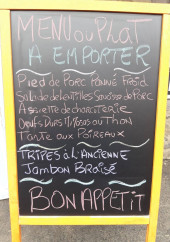 MENU ou PLAT
A EMPORTER
Pied de Porc Panné Froid
Salade de Lentilles Saucisse de Porc
Assiette de charcuterie
Oeufs Durs Mayo ou Thon
Tarte aux Poireaux
TRIPES à l'Ancienne
Jambon Braisé
BON APPÉTIT